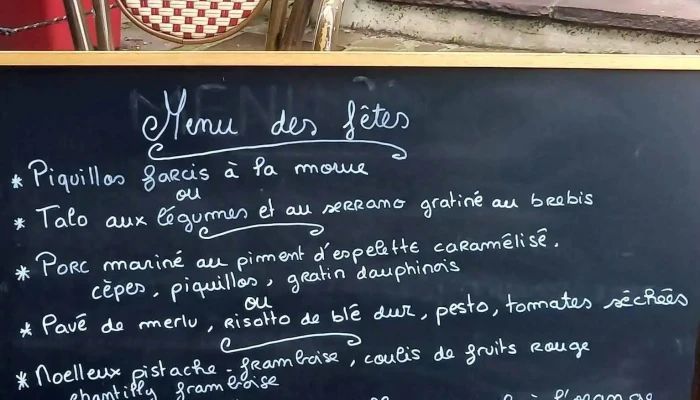 Menu des fêtes
* Piquillos farcis à la morue
ou
* Talo aux légumes et au serrano gratiné au brebis
* Porc mariné au piment d'espelette caramélisé.
cèpes, piquillos, gratin dauphinois
ou
* Pavé de merlu, risotto de blé dur, pesto, tomates séchées
* Moelleux pistache - framboise, coulis de fruits rouge
chantilly framboise
à l'orange